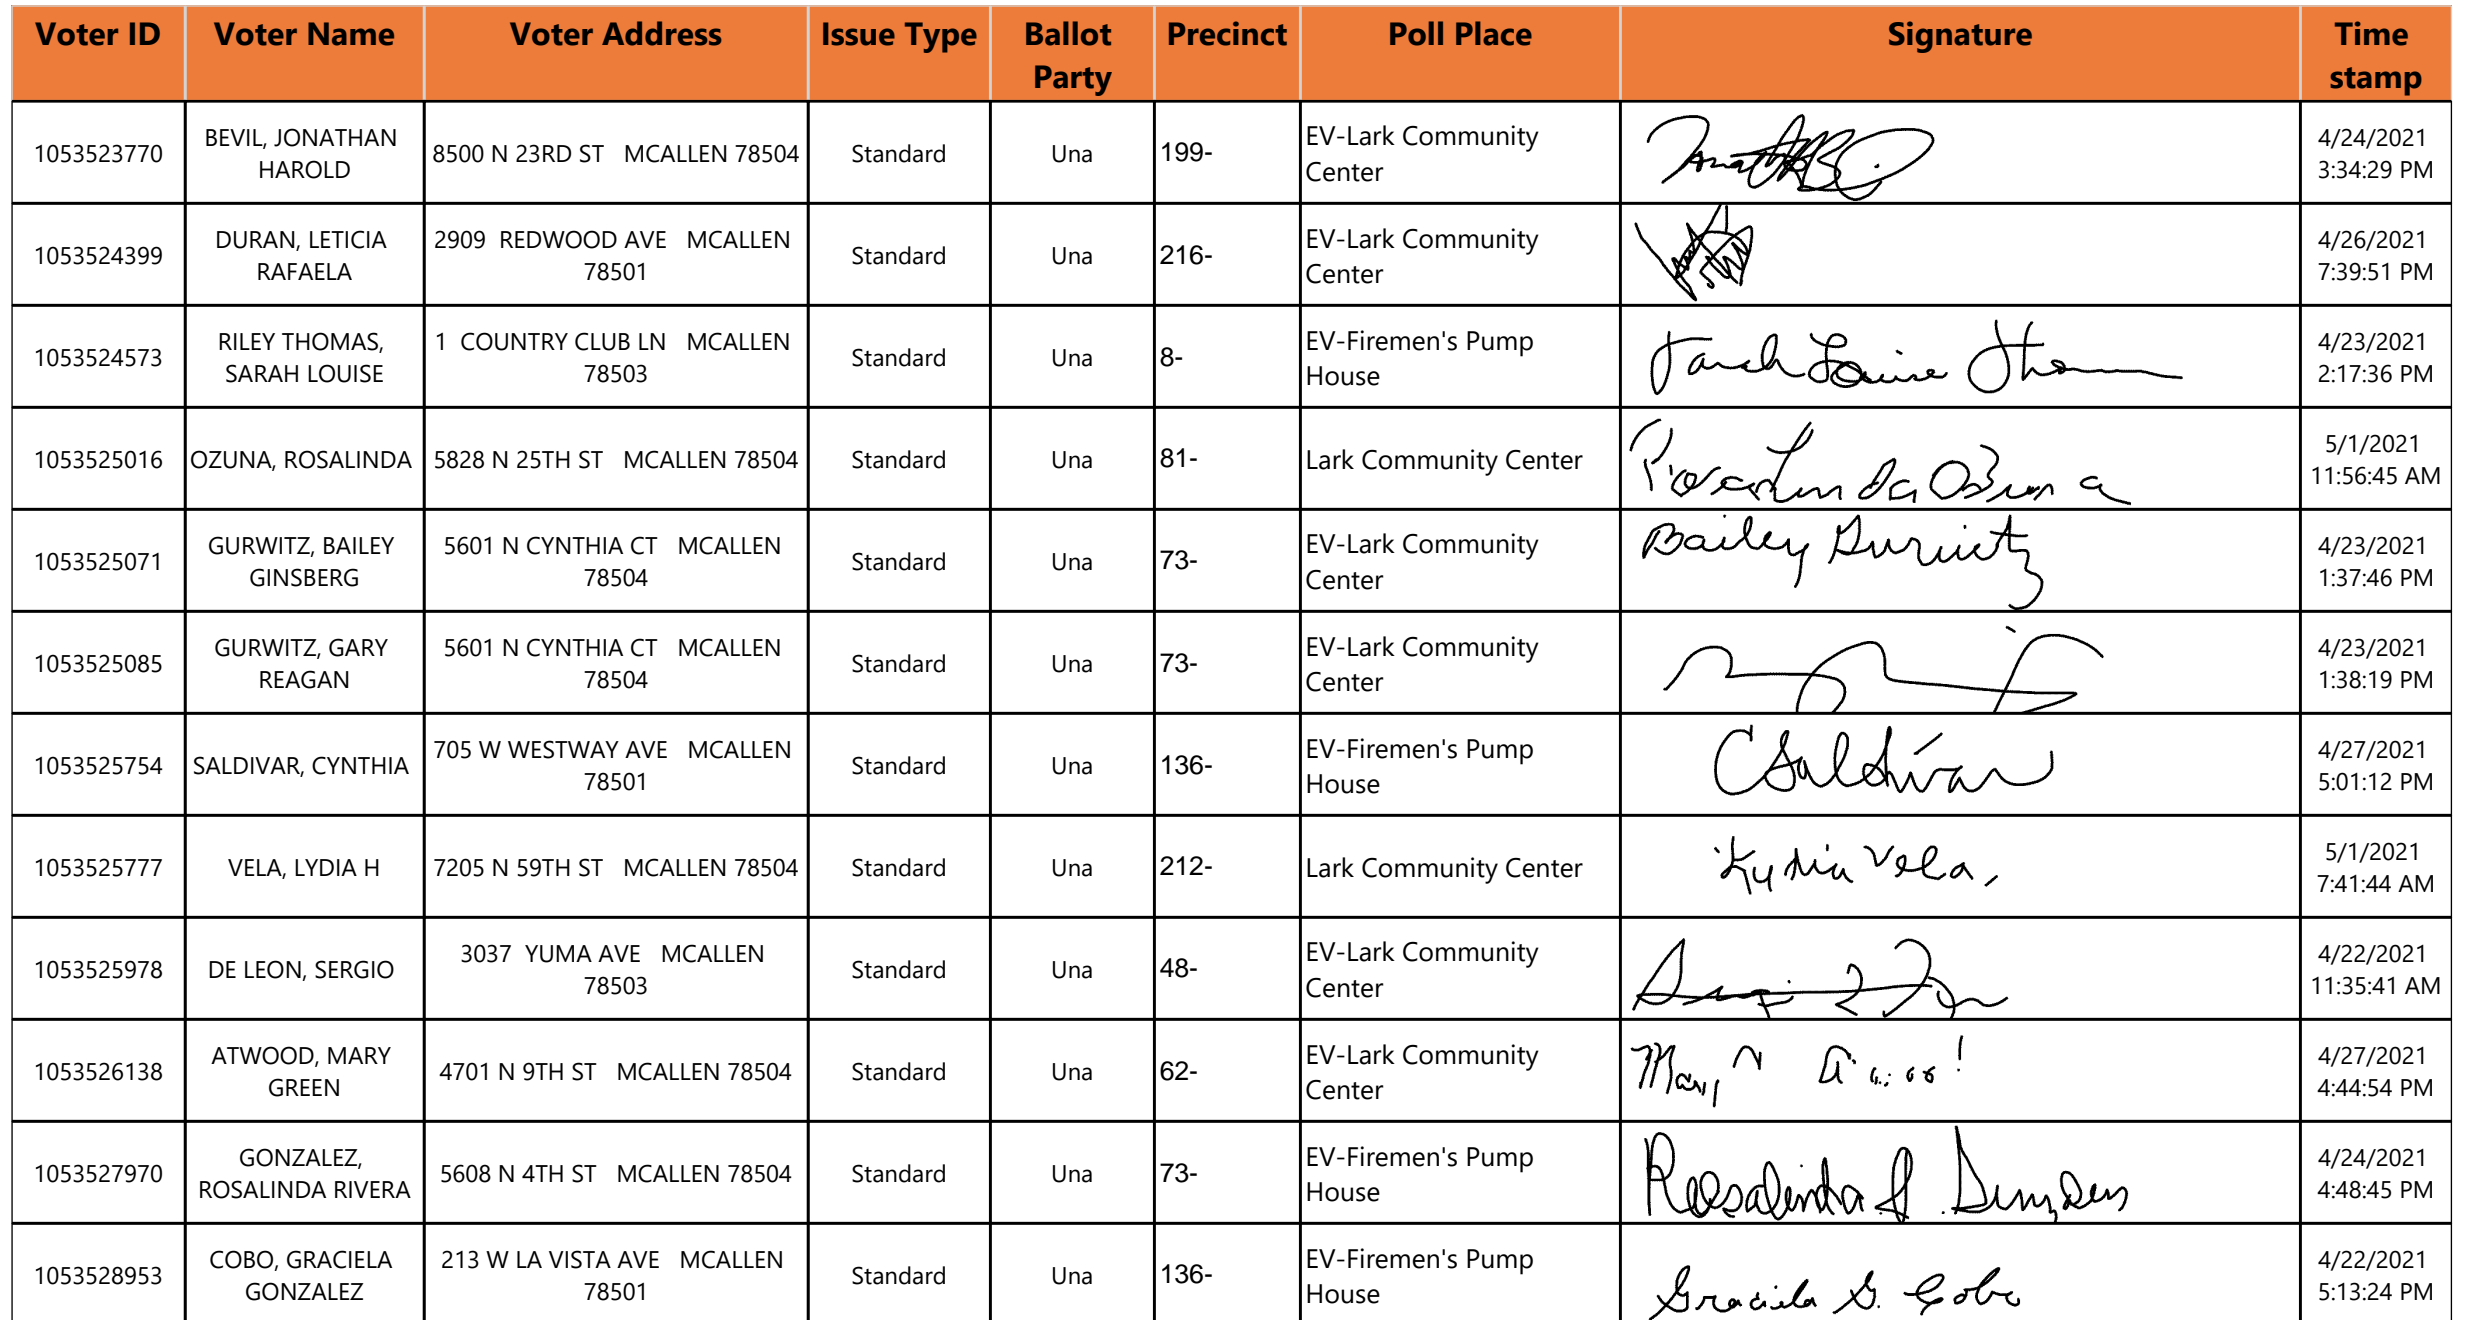 Voter ID Voter Name Voter Address Issue Type Ballot Party Precinct Poll Place Signature Time stamp
1053523770 BEVIL, JONATHAN HAROLD 8500 N 23RD ST MCALLEN 78504 Standard Una 199- EV-Lark Community Center 4/24/2021 3:34:29 PM
1053524399 DURAN, LETICIA RAFAELA 2909 REDWOOD AVE MCALLEN 78501 Standard Una 216- EV-Lark Community Center 4/26/2021 7:39:51 PM
1053524573 RILEY THOMAS, SARAH LOUISE 1 COUNTRY CLUB LN MCALLEN 78503 Standard Una 8- EV-Firemen's Pump House Sarah Louise Thomas 4/23/2021 2:17:36 PM
1053525016 OZUNA, ROSALINDA 5828 N 25TH ST MCALLEN 78504 Standard Una 81- Lark Community Center Rosalinda Ozuna 5/1/2021 11:56:45 AM
1053525071 GURWITZ, BAILEY GINSBERG 5601 N CYNTHIA CT MCALLEN 78504 Standard Una 73- EV-Lark Community Center Bailey Gurwitz 4/23/2021 1:37:46 PM
1053525085 GURWITZ, GARY REAGAN 5601 N CYNTHIA CT MCALLEN 78504 Standard Una 73- EV-Lark Community Center 4/23/2021 1:38:19 PM
1053525754 SALDIVAR, CYNTHIA 705 W WESTWAY AVE MCALLEN 78501 Standard Una 136- EV-Firemen's Pump House CSaldívar 4/27/2021 5:01:12 PM
1053525777 VELA, LYDIA H 7205 N 59TH ST MCALLEN 78504 Standard Una 212- Lark Community Center Lydia Vela, 5/1/2021 7:41:44 AM
1053525978 DE LEON, SERGIO 3037 YUMA AVE MCALLEN 78503 Standard Una 48- EV-Lark Community Center 4/22/2021 11:35:41 AM
1053526138 ATWOOD, MARY GREEN 4701 N 9TH ST MCALLEN 78504 Standard Una 62- EV-Lark Community Center Mary 4/27/2021 4:44:54 PM
1053527970 GONZALEZ, ROSALINDA RIVERA 5608 N 4TH ST MCALLEN 78504 Standard Una 73- EV-Firemen's Pump House Rosalinda 4/24/2021 4:48:45 PM
1053528953 COBO, GRACIELA GONZALEZ 213 W LA VISTA AVE MCALLEN 78501 Standard Una 136- EV-Firemen's Pump House Graciela G. Cobo 4/22/2021 5:13:24 PM